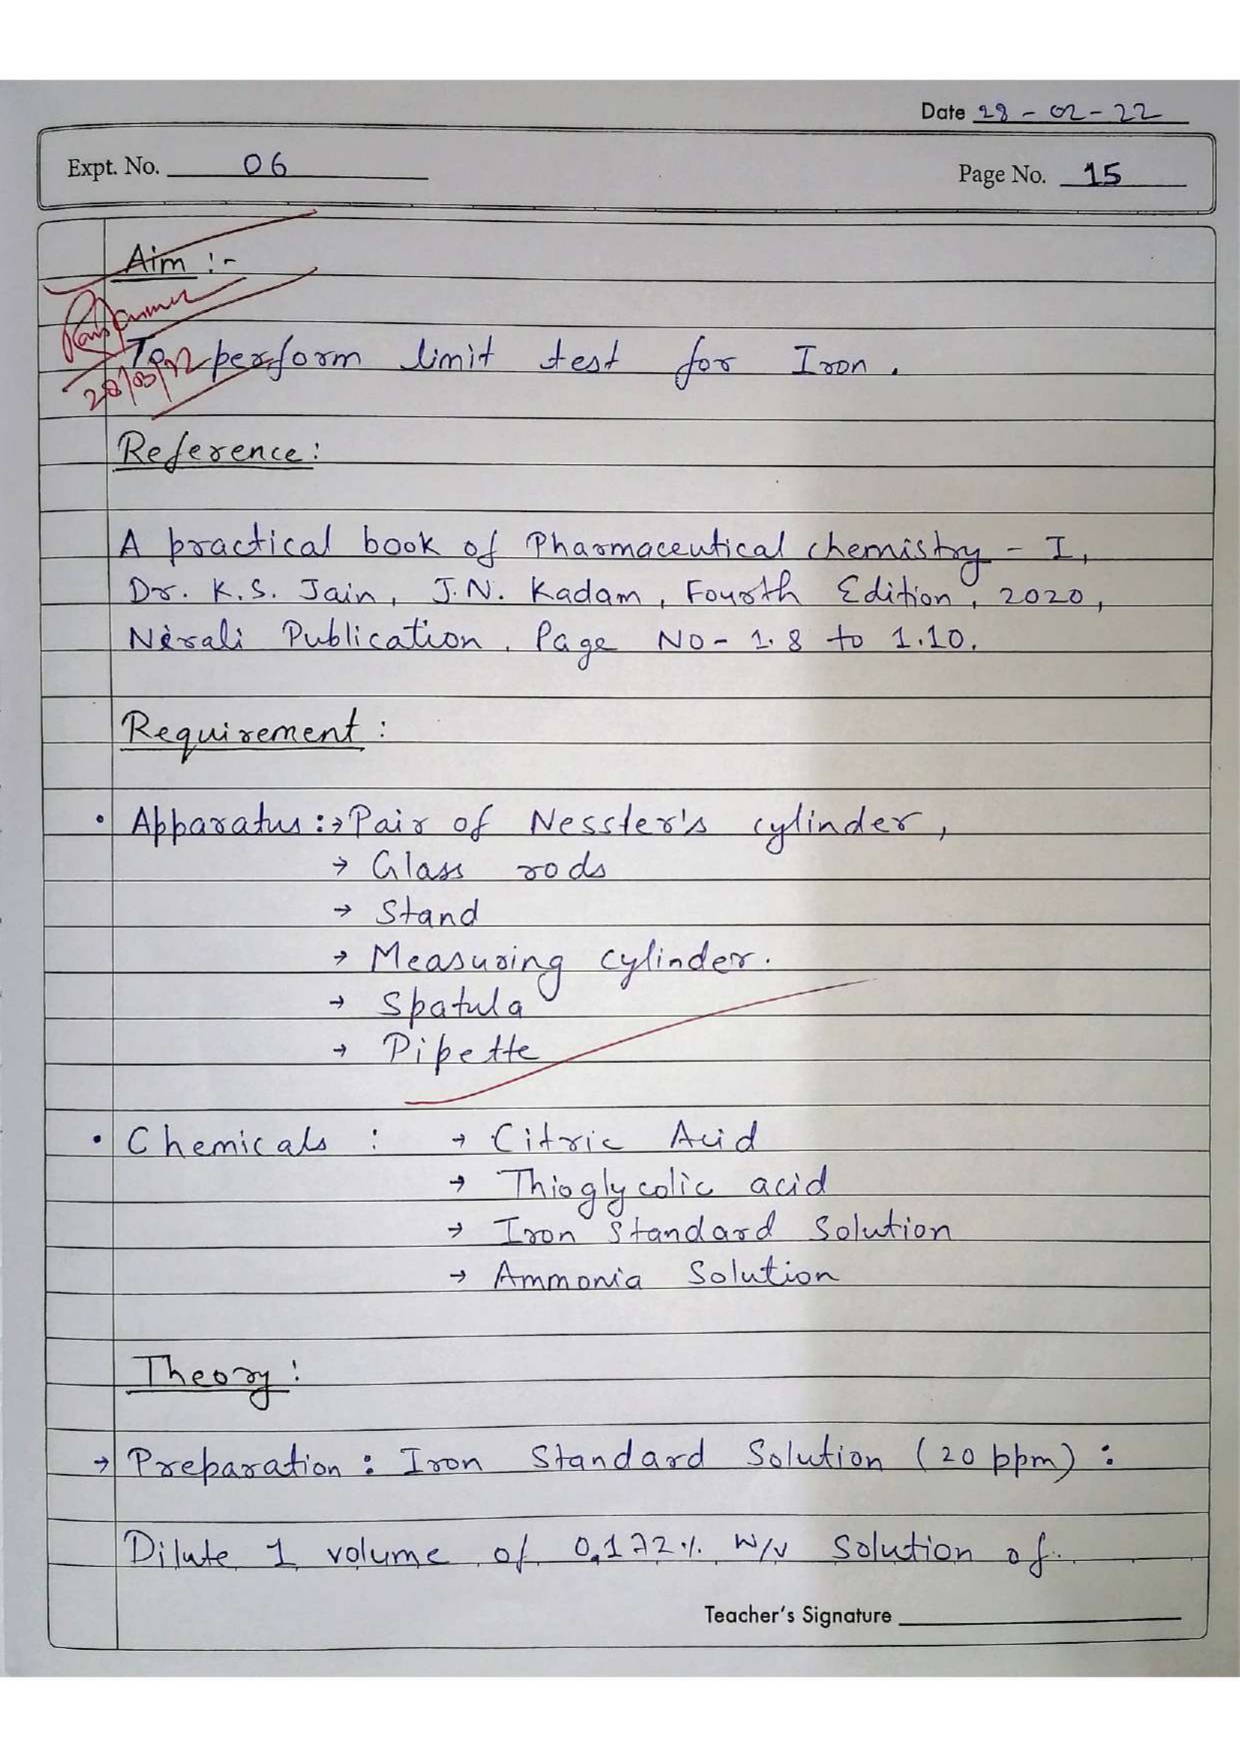 Date 28 - 02 - 22
Expt. No. 06
Page No. 15
Aim :-
To perform limit test for Iron.
28/03/22
Reference:
A practical book of Pharmaceutical chemistry - I,
Dr. K.S. Jain, J.N. Kadam, Fourth Edition, 2020,
Nirali Publication, Page NO- 1.8 to 1.10.
Requirement :
• Apparatus :→ Pair of Nessler's cylinder,
→ Glass rods
→ Stand
→ Measuring cylinder.
→ Spatula
→ Pipette
• Chemicals : → Citric Acid
→ Thioglycolic acid
→ Iron Standard Solution
→ Ammonia Solution
Theory :
→ Preparation : Iron Standard Solution (20 ppm) :
Dilute 1 volume of 0.172% w/v solution of
Teacher's Signature